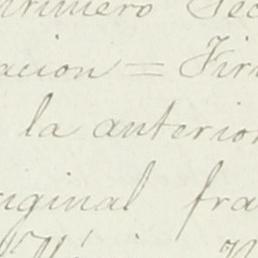 primero Sec
acion = Fir
la anterior
riginal fra